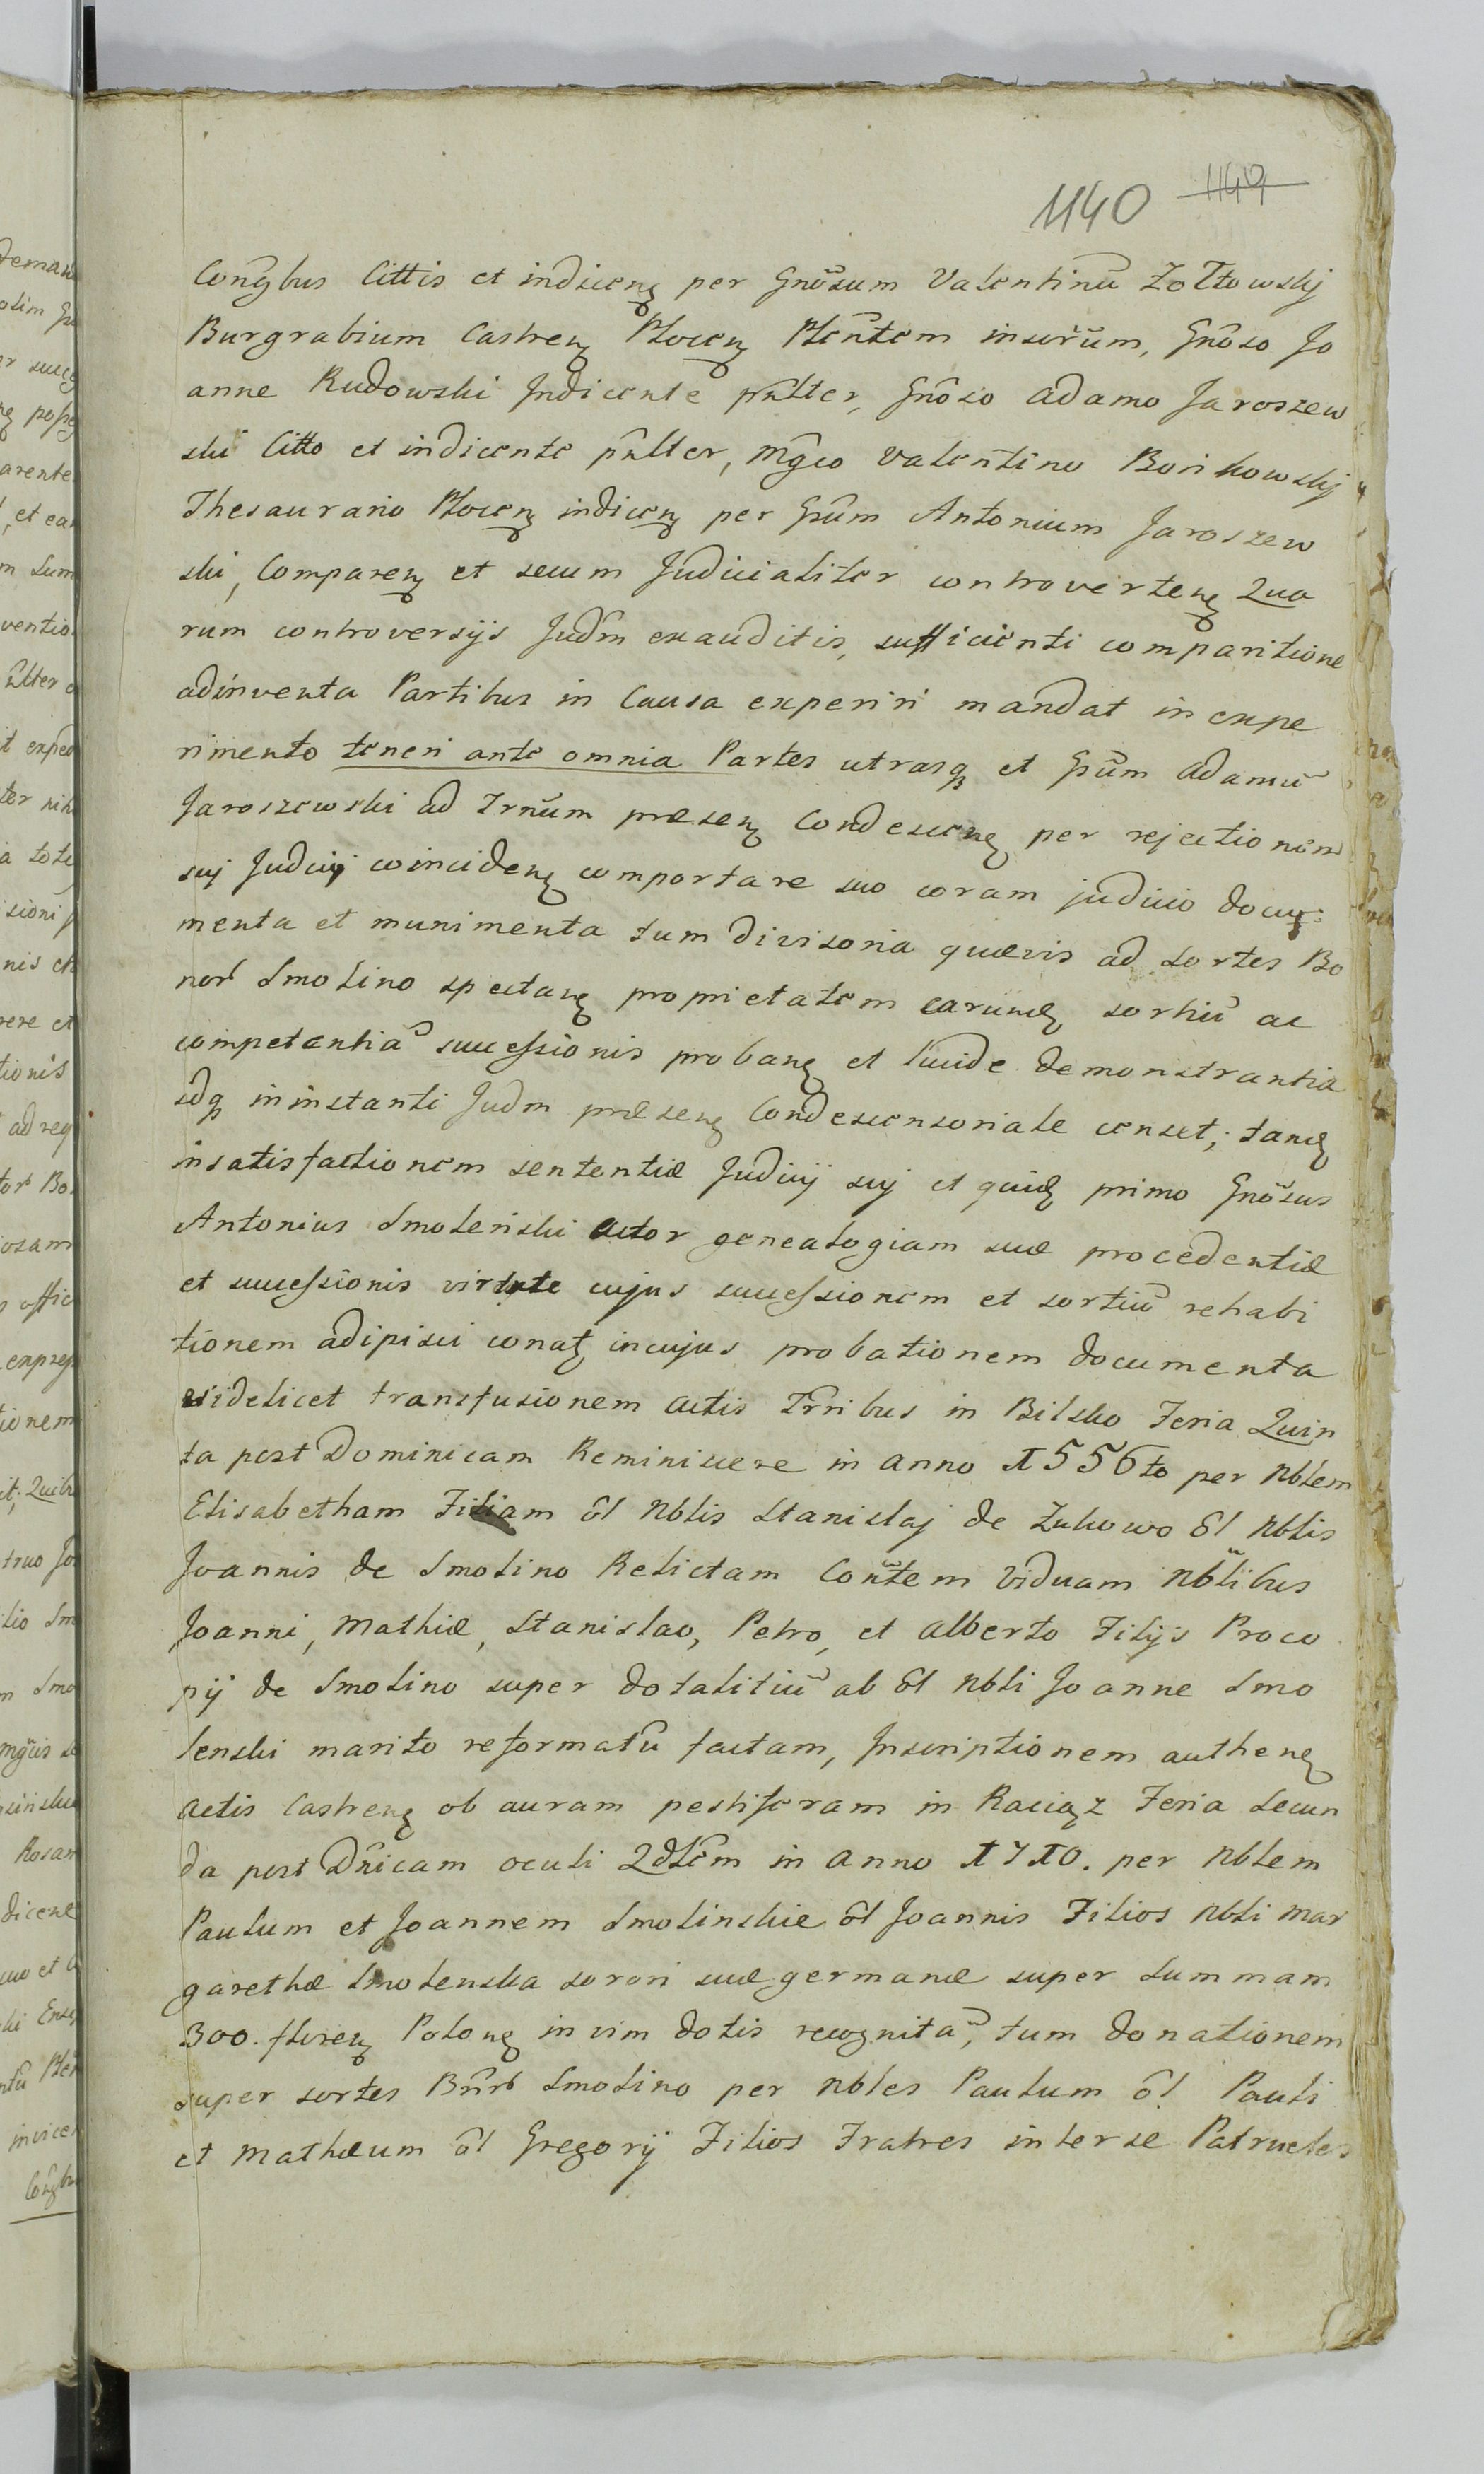 1140 1149
Congbus Cittis et indicenʒ per Gnõsum Valentinũ Zołtowskij
Burgrabium Castrenʒ Plocenʒ Plentem insciũm, Gnõso Jo
anne Rudowski Indicente pnlter, Gnõso Adamo Jaroszew
ski Citto et indicente pnlter, Mgco Valentino Bonikowskij
Thesaurario Plocenʒ indicenʒ per Gnũm Antonium Jaroszew
ski, Comparenʒ et secum Judicialiter controvertenʒ Qua
rum controversijs Judm exauditis, sufficienti comparitione
adinventa Partibus in Causa experiri mandat in expe
rimento teneri ante omnia Partes utrasqʒ et Gnũm Adamũ
Jaroszewski ad Trnum præsenʒ Condescenʒ per rejectionem
suj Judicij coincidenʒ comportare suo coram judicio docu:
menta et munimenta tum divisoria quævis ad sortes Bo
nor Smolino spectanʒ proprietatem earundʒ sortiũ ac
competentiã successionis probanʒ et lucide demonstrantia
idqʒ ininstanti Judm præsenʒ Condescensoriale censet; tandʒ
insatisfactionem sententiæ Judicij suj et quidʒ primo Gnõsus
Antonius Smolenski actor genealogiam suæ procedentiæ
et successionis virtute cujus successionem et sortiũ rehabi
tionem adipisci conatʒ incujus probationem documenta
videlicet transfusionem actis Trribus in Bilsko Feria Quin
ta post Dominicam Reminiscere in anno 1556to per Nblem
Elisabetham Filiam õl Nblis Stanislaj de Zukowo õl Nblis
Joannis de Smolino Relictam Contem Viduam Nblibus
Joanni, Mathiæ, Stanislao, Petro, et Alberto Filijs Proco
pij de Smolino super dotalitiũ ab õl Nbli Joanne Smo
lenski marito reformatũ factam, Inscriptionem authenʒ
actis Castrenʒ ob auram pestiferam in Raciąz Feria Secun
da post Dnicam oculi Qdlem in anno 1710. per Nblem
Paulum et Joannem Smolinskie õl Joannis Filios Nbli Mar
garethæ Smolenska sorori suæ germanæ super summam
300. florenʒ Polonʒ in vim dotis recognitã, tum donationem
super sortes Bnrb Smolino per Nbles Paulum õl Pauli
et Mathæum õl Gregorij Filios Fratres inter se Patrueles